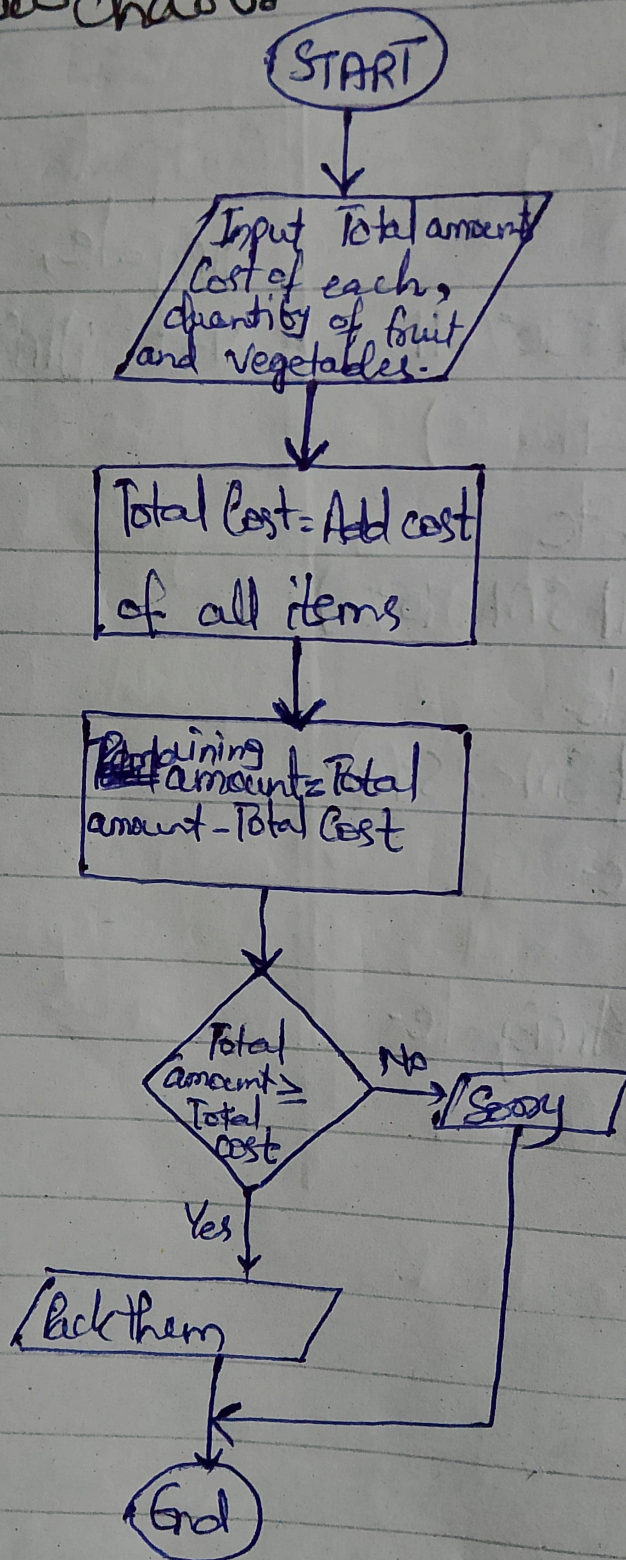 Chart
START
Input Total amount
Cost of each,
quantity of fruit
and vegetables.
Total Cost = Add cost
of all items
Remaining
amount = Total
amount - Total Cost
Total
amount ≥
Total
cost
No
Sorry
Yes
Pack them
End